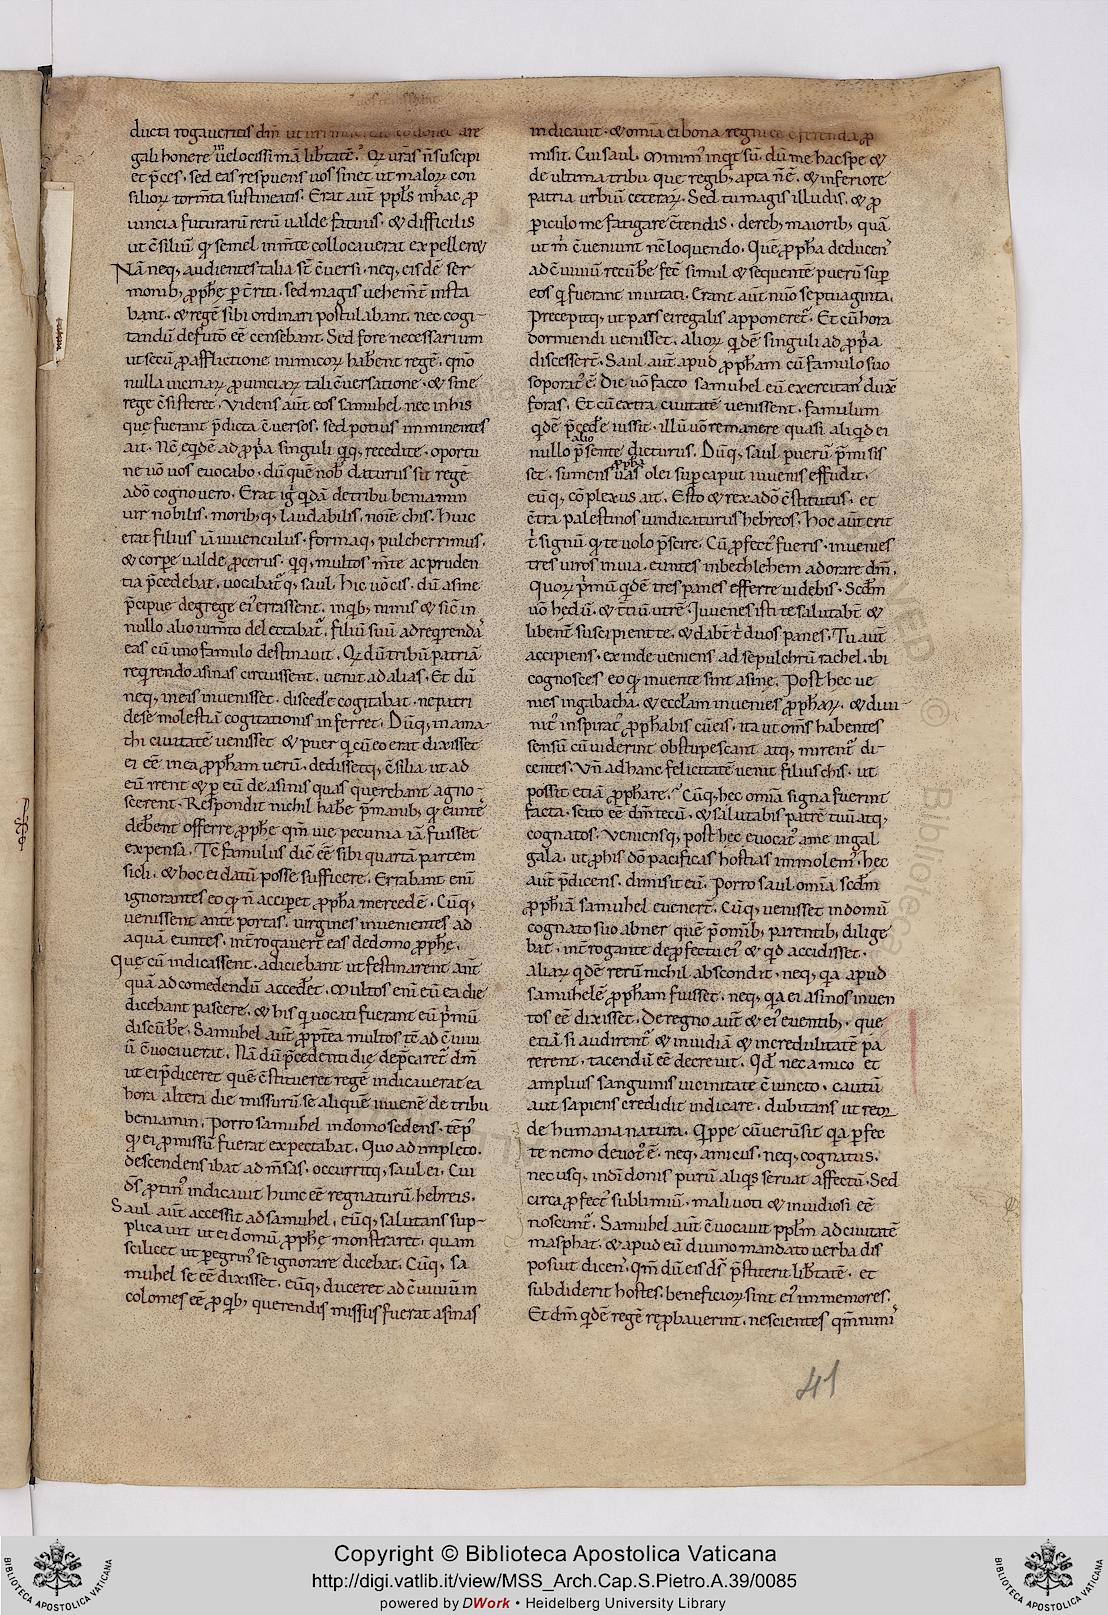 ducti rogaueritis dm̄ ut uiri
gali honere uelocissimā lib̄tatē. Qꝛ ur̄as n̄ suscipi
et p̄ces. sed eas respuens uos sinet ut maloꝝ con
silioꝝ torm̄ta sustineatis. Erat aut̄ ppl̄s in hac ꝓ
uincia futurarū rerū ualde fatuus. & difficilis
ut c̄siliū qꝛ semel in m̄te collocauerat expellere
Nā neqꝫ audientes talia st̄ c̄uersi. neqꝫ eisdē ser
monibꝫ ꝓphe ꝑt̄riti. sed magis uehem̄t insta
bant. & regē sibi ordinari postulabant. nec cogi-
tandū de futo ēē censebant. Sed fore necessarium
ut secū ꝓ afflictione inimicoꝝ hab̄ent regē. qm̄o
nulla uicinaꝝ ꝓuinciaꝝ tali c̄uersatione. & sine
rege c̄sisteret. Videns aut̄ eos samuhel nec in his
que fuerant p̄dicta c̄uersos. sed potius imminentes
ait. Nc̄ eqdē ad ꝓp̄a singuli qqꝫ recedite. oportu
ne uō uos euocabo. dū quē nob̄ daturus sit regē
adō cognouero. Erat igr̄ qdā de tribu beniamin
uir nobilis. moribꝫqꝫ laudabilis. noīe chis. Huic
erat filius iā iuuenculus. formaqꝫ pulcherrimus.
& corpe ualde ꝓcerus. qqꝫ multos m̄te ac pruden
tia p̄cedebat. uocibat̄qꝫ saul. Hic uō cis. dū asine
p̄cipue degrege ei' errassent. in qbꝫ nimis & sic̄ in
nullo alio ium̄to delectabat̄. filiū suū ad reqrendā
eas cū uno famulo destinauit. Qꝛ dū tribū patriā
reqrendo asinas circuissent. uenit ad alias. Et dū
neqꝫ in eis inuenisset. disced̄e cogitabat. ne patri
de se molestiā cogitationis inferret. Dūqꝫ in ama-
thi ciuitatē uenisset & puer q cū eo erat dixisset
ei ēē in ea ꝓpham uerū. dedissetqꝫ c̄silia ut ad
eū irent & ꝑ eū de asinis quas querebant agno-
scerent. Respondit nichil hab̄e p̄ manibꝫ qꝛ eunte
deb̄ent offerre ꝓphe qm̄ uie pecunia iā fuisset
expensa. Tc̄ famulus dic̄ ēē sibi quartā partem
sicli. & hoc ei datū posse sufficere. Errabant enī
ignorantes eo qꝛ n̄ acciꝑet ꝓpha mercedē. Cūqꝫ
uenissent ante portas. uirgines inuenientes ad
aquā euntes. int̄rogauer̄t eas de domo ꝓphę.
Quę cū indicassent. adiciebant ut festinarent ant̄
quā ad comedendū acced̄et. Multos enī eū ea die
dicebant pascere. & his q uocati fuerant eū p̄mū
discūb̄e. Samuhel aut̄ ꝓpt̄ea multos tc̄ ad c̄uiui
ū c̄uocauerat. Nā dū p̄cedenti die dep̄caret̄ dm̄
ut ei p̄diceret quē c̄stitueret regē indicauerat ea
hora altera die missurū se aliquē iuuenē de tribu
beniamin. Porro samuhel in domo sedens. tēp'
qꝛ ei ꝓmissū fuerat expectabat. Quo adimpleto.
descendens ibat ad m̄sas. occurritqꝫ saul ei. Cui
ds̄ ꝓtin' indicauit hunc ēē regnaturū hebreis.
Saul aut̄ accessit ad samuhel. eūqꝫ salutans sup-
plicauit ut ei domū ꝓphę monstraret. quam
scilicet ut ꝑegrin' se ignorare dicebat. Cūqꝫ sa
muhel se ēē dixisset. eūqꝫ duceret ad c̄uiuiū in
colomes ēē ꝓ qbꝫ querendis missus fuerat asinas
indicauit. & omīa ei bona regni ꝓ
misit. Cui saul. Minim' inqt sū. dū me hac spe &
de ultima tribu que regibꝫ apta n̄ ē. & inferiore
patria urbiū ceteraꝝ. Sed tu magis illudis. & ꝓ
ꝑiculo me fatigare c̄tendis. de rebꝫ maioribꝫ quā
ut m̄ c̄ueniunt nc̄ loquendo. Quē ꝓpha deducen̄
ad c̄uiuiū recūb̄e fec̄ simul & sequentē puerū suꝑ
eos q fuerant inuitati. Erant aut̄ nūo septuaginta.
Precepitqꝫ ut pars ei regalis apponeret̄. Et cū hora
dormiendi uenisset. alioꝝ qdē singuli ad ꝓp̄a
discesser̄t. Saul aut̄ apud ꝓpham cū famulo suo
soporat' ē. Die uō facto samuhel eū exercitan̄ duxē
foras. Et cū extra ciuitatē uenissent. famulum
qdē p̄ced̄e iussit. illū uō remanere quasi aliqd ei
nullo alio p̄sente dicturus. Dūqꝫ saul puerū p̄misis
set. sumens ꝓpha uas olei suꝑ caput iuuenis effudit.
eūqꝫ cōplexus ait. Esto & rex adō c̄stitutus. et
c̄tra palestinos uindicaturus hebreos. hoc aut̄ erit
t̄ signū qꝛ te uolo p̄scire. Cū ꝓfect' fueris. inuenies
tres uiros in uia. euntes in bechlehem adorare dm̄.
Quoꝝ p̄mū qdē tres panes efferre uidebis. Scdm̄
uō hedū. & t̄tiū utrē. Iuuenes isti te salutabt̄ &
libent̄ suscipient te. & dabt̄ t̄ duos panes. Tu aut̄
accipiens. ex inde ueniens ad sepulchrū rachel. ibi
cognosces eo qꝛ inuente sint asinę. Post hec ue
nies in gabacha. & eccl̄am inuenies ꝓphaꝝ. & diui-
nit' inspirat' ꝓphabis cū eis. ita ut om̄s habentes
sensū cū uiderint obstupescant atqꝫ mirent̄ di-
centes. Vn̄ ad hanc felicitatē uenit filius chis. ut
possit etiā ꝓphare. Cūqꝫ hec omīa signa fuerint
facta. scito ēē dm̄ tecū. & salutabis patrē tuū atqꝫ
cognatos. Veniensqꝫ post hec euocat' a me in gal
gala. ut ꝓ his dō pacificas hostias immolem'. hec
aut̄ p̄dicens. dimisit eū. Porro saul omīa scdm̄
ꝓphiā samuhel euener̄t. Cūqꝫ uenisset in domū
cognato suo abner quē p̄ omībꝫ parentibꝫ dilige
bat. int̄rogante de ꝓfectu ei' & qd accidisset.
aliaꝝ qdē rerū nichil abscondit. neqꝫ qa apud
samuhelē ꝓpham fuisset. neqꝫ qa ei asinos inuen
tos ēē dixisset. De regno aut̄ & ei' euentibꝫ. que
etiā si audirent̄ & inuidiā & incredulitatē pa
rerent. tacendū ēē decreuit. Qd nec amico et
amplius sanguinis uicinitate c̄uincto. cautū
aut sapiens credidit indicare. dubitans ut reor
de humana natura. Qippe cū uerū sit qa ꝑfec
te nemo deuot' ē. neqꝫ amicus. neqꝫ cognatus.
nec usqꝫ in dī donis purū aliqs seruat affectū. Sed
circa ꝓfect' sublimiū. mali uoti & inuidiosi ēē
noscunt̄. Samuhel aut̄ c̄uocauit ppl̄m ad ciuitatē
masphat. & apud eū diuino mandato uerba dis
posuit dicen̄. qm̄ dū eis ds̄ p̄stiterit lib̄tatē. et
subdiderit hostes. beneficioꝝ sint ei' immemores.
Et dm̄ qdē regē reꝓbauerint. nescientes qm̄ nimi
41
Copyright © Biblioteca Apostolica Vaticana
http://digi.vatlib.it/view/MSS_Arch.Cap.S.Pietro.A.39/0085
powered by DWork • Heidelberg University Library